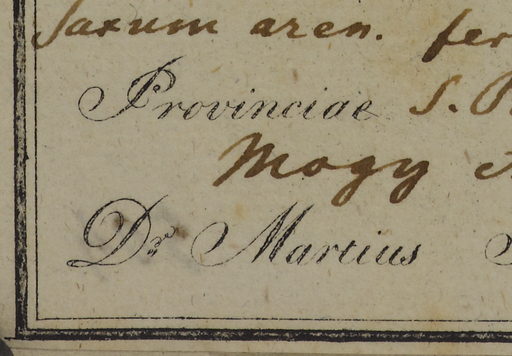 Saxum aren. fer
Provinciae S. P
Mogy
Dr Martius